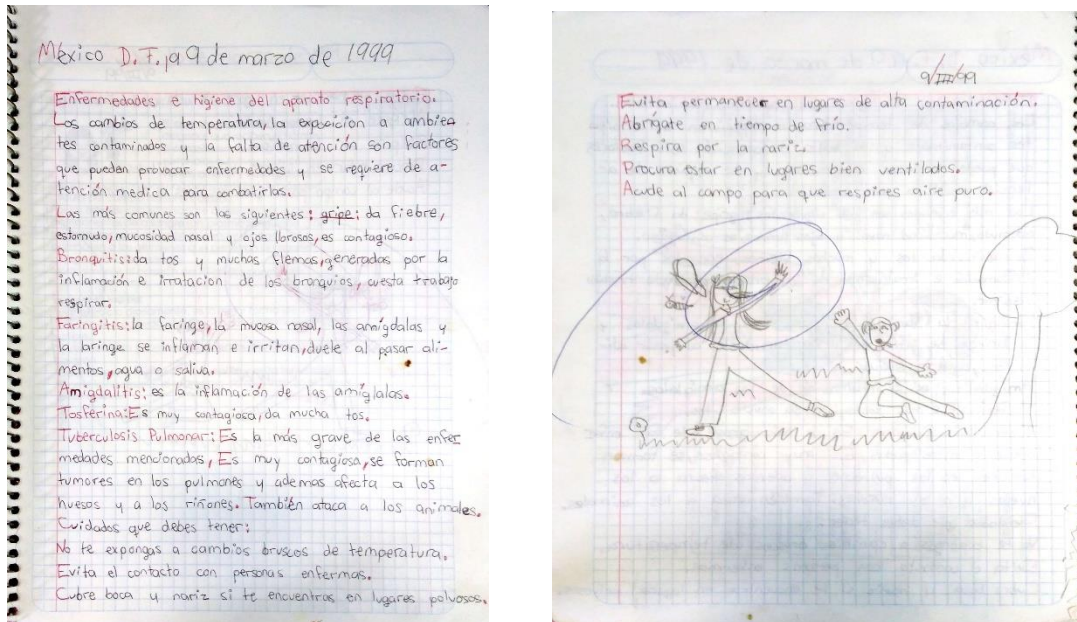 México D.F., a 9 de marzo de 1999
Enfermedades e higiene del aparato respiratorio.
Los cambios de temperatura, la exposicion a ambien
tes contaminados y la falta de atención son factores
que pueden provocar enfermedades y se requiere de a-
tención medica para combatirlas.
Las más comunes son las siguientes: gripe: da fiebre,
estornudo, mucosidad nasal y ojos llorosos, es contagioso.
Bronquitis: da tos y muchas flemas, generadas por la
inflamación e irratacion de los bronquios, cuesta trabajo
respirar.
Faringitis: la faringe, la mucosa nasal, las amígdalas y
la laringe se inflaman e irritan, duele al pasar ali-
mentos, agua o saliva.
Amigdalitis: es la inflamación de las amíglalas.
Tosferina: Es muy contagiosa, da mucha tos.
Tuberculosis Pulmonar: Es la más grave de las enfer
medades mencionadas, Es muy contagiosa, se forman
tumores en los pulmones y ademas afecta a los
huesos y a los riñones. También ataca a los animales.
Cuidados que debes tener:
No te expongas a cambios bruscos de temperatura.
Evita el contacto con personas enfermas.
Cubre boca y nariz si te encuentras en lugares polvosos.
9/III/99
Evita permanecer en lugares de alta contaminación.
Abrígate en tiempo de frío.
Respira por la nariz.
Procura estar en lugares bien ventilados.
Acude al campo para que respires aire puro.